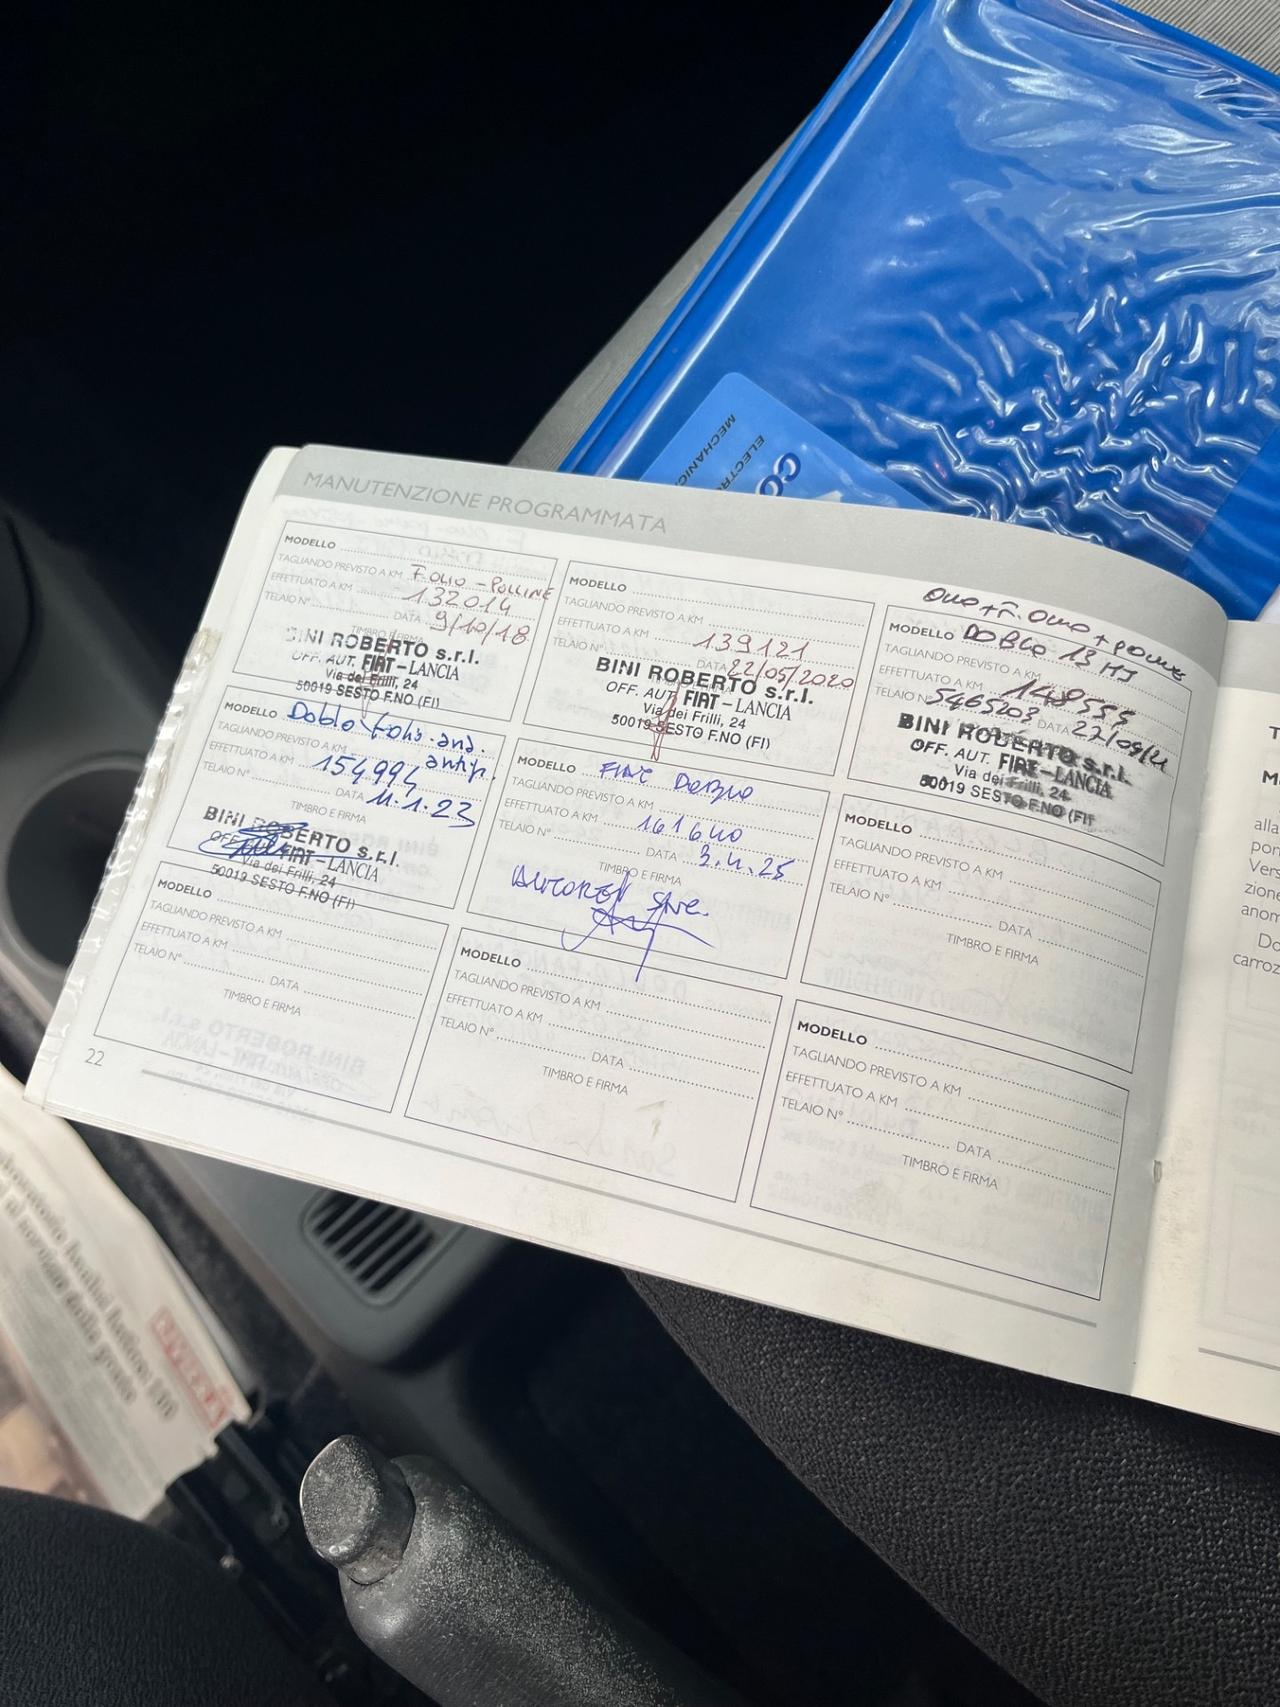 MANUTENZIONE PROGRAMMATA
MODELLO
TAGLIANDO PREVISTO A KM F. OLIO - POLLINE
EFFETTUATO A KM 132014
TELAIO N° DATA 9/10/18
TIMBRO E FIRMA
BINI ROBERTO s.r.l.
OFF. AUT. FIAT - LANCIA
Via dei Frilli, 24
50019 SESTO F.NO (FI)
MODELLO
TAGLIANDO PREVISTO A KM
EFFETTUATO A KM 139121
TELAIO N° DATA 22/05/2020
BINI ROBERTO s.r.l.
OFF. AUT. FIAT - LANCIA
Via dei Frilli, 24
50019 SESTO F.NO (FI)
OLIO + F. OLIO +
MODELLO DOBLO 13 MJ
TAGLIANDO PREVISTO A KM
EFFETTUATO A KM 148555
TELAIO N° 5465203 DATA
BINI ROBERTO s.r.l.
OFF. AUT. FIAT - LANCIA
Via dei Frilli, 24
50019 SESTO F.NO (FI)
MODELLO Doblo
TAGLIANDO PREVISTO A KM
EFFETTUATO A KM 154994
TELAIO N° DATA 11.1.23
TIMBRO E FIRMA
BINI ROBERTO s.r.l.
OFF. AUT. FIAT - LANCIA
Via dei Frilli, 24
50019 SESTO F.NO (FI)
MODELLO FIAT DOBLO
TAGLIANDO PREVISTO A KM
EFFETTUATO A KM 161640
TELAIO N° DATA 3.4.25
TIMBRO E FIRMA
MODELLO
TAGLIANDO PREVISTO A KM
EFFETTUATO A KM
TELAIO N° DATA
TIMBRO E FIRMA
MODELLO
TAGLIANDO PREVISTO A KM
EFFETTUATO A KM
TELAIO N° DATA
TIMBRO E FIRMA
MODELLO
TAGLIANDO PREVISTO A KM
EFFETTUATO A KM
TELAIO N° DATA
TIMBRO E FIRMA
MODELLO
TAGLIANDO PREVISTO A KM
EFFETTUATO A KM
TELAIO N° DATA
TIMBRO E FIRMA
22